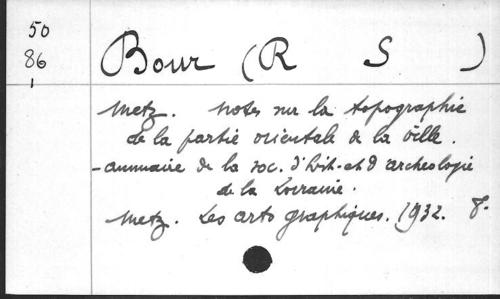 50
86
1
Bour (R S )
Metz. Notes sur la topographie
de la partie orientale de la ville.
- annuaire de la soc. d'hist. et d'archeologie
de la Lorraine.
Metz. Les arts graphiques. 1932. 8.